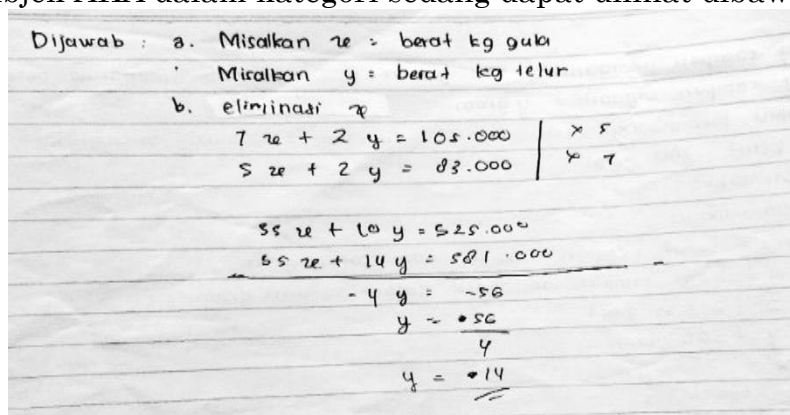 Dijawab : a. Misalkan x = berat kg gula
Misalkan y = berat kg telur
b. eliminasi x
7 x + 2 y = 105.000 | × 5
5 x + 2 y = 83.000 | × 7
35 x + 10 y = 525.000
35 x + 14 y = 581.000
- 4 y = -56
y = 56
4
y = 14